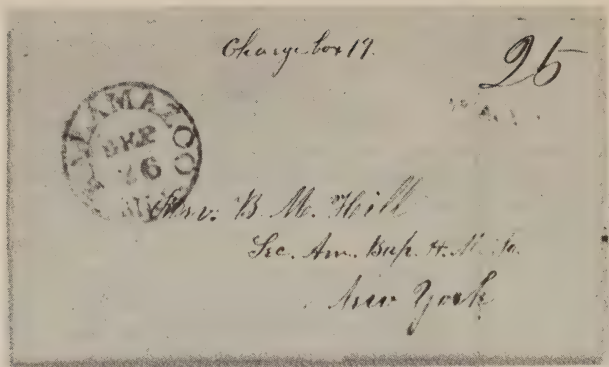 Charge box 19.
25
KALAMAZOO
SEP
26
Rev. B. M. Hill
Sec. Am. Bap. H. M. So.
New York